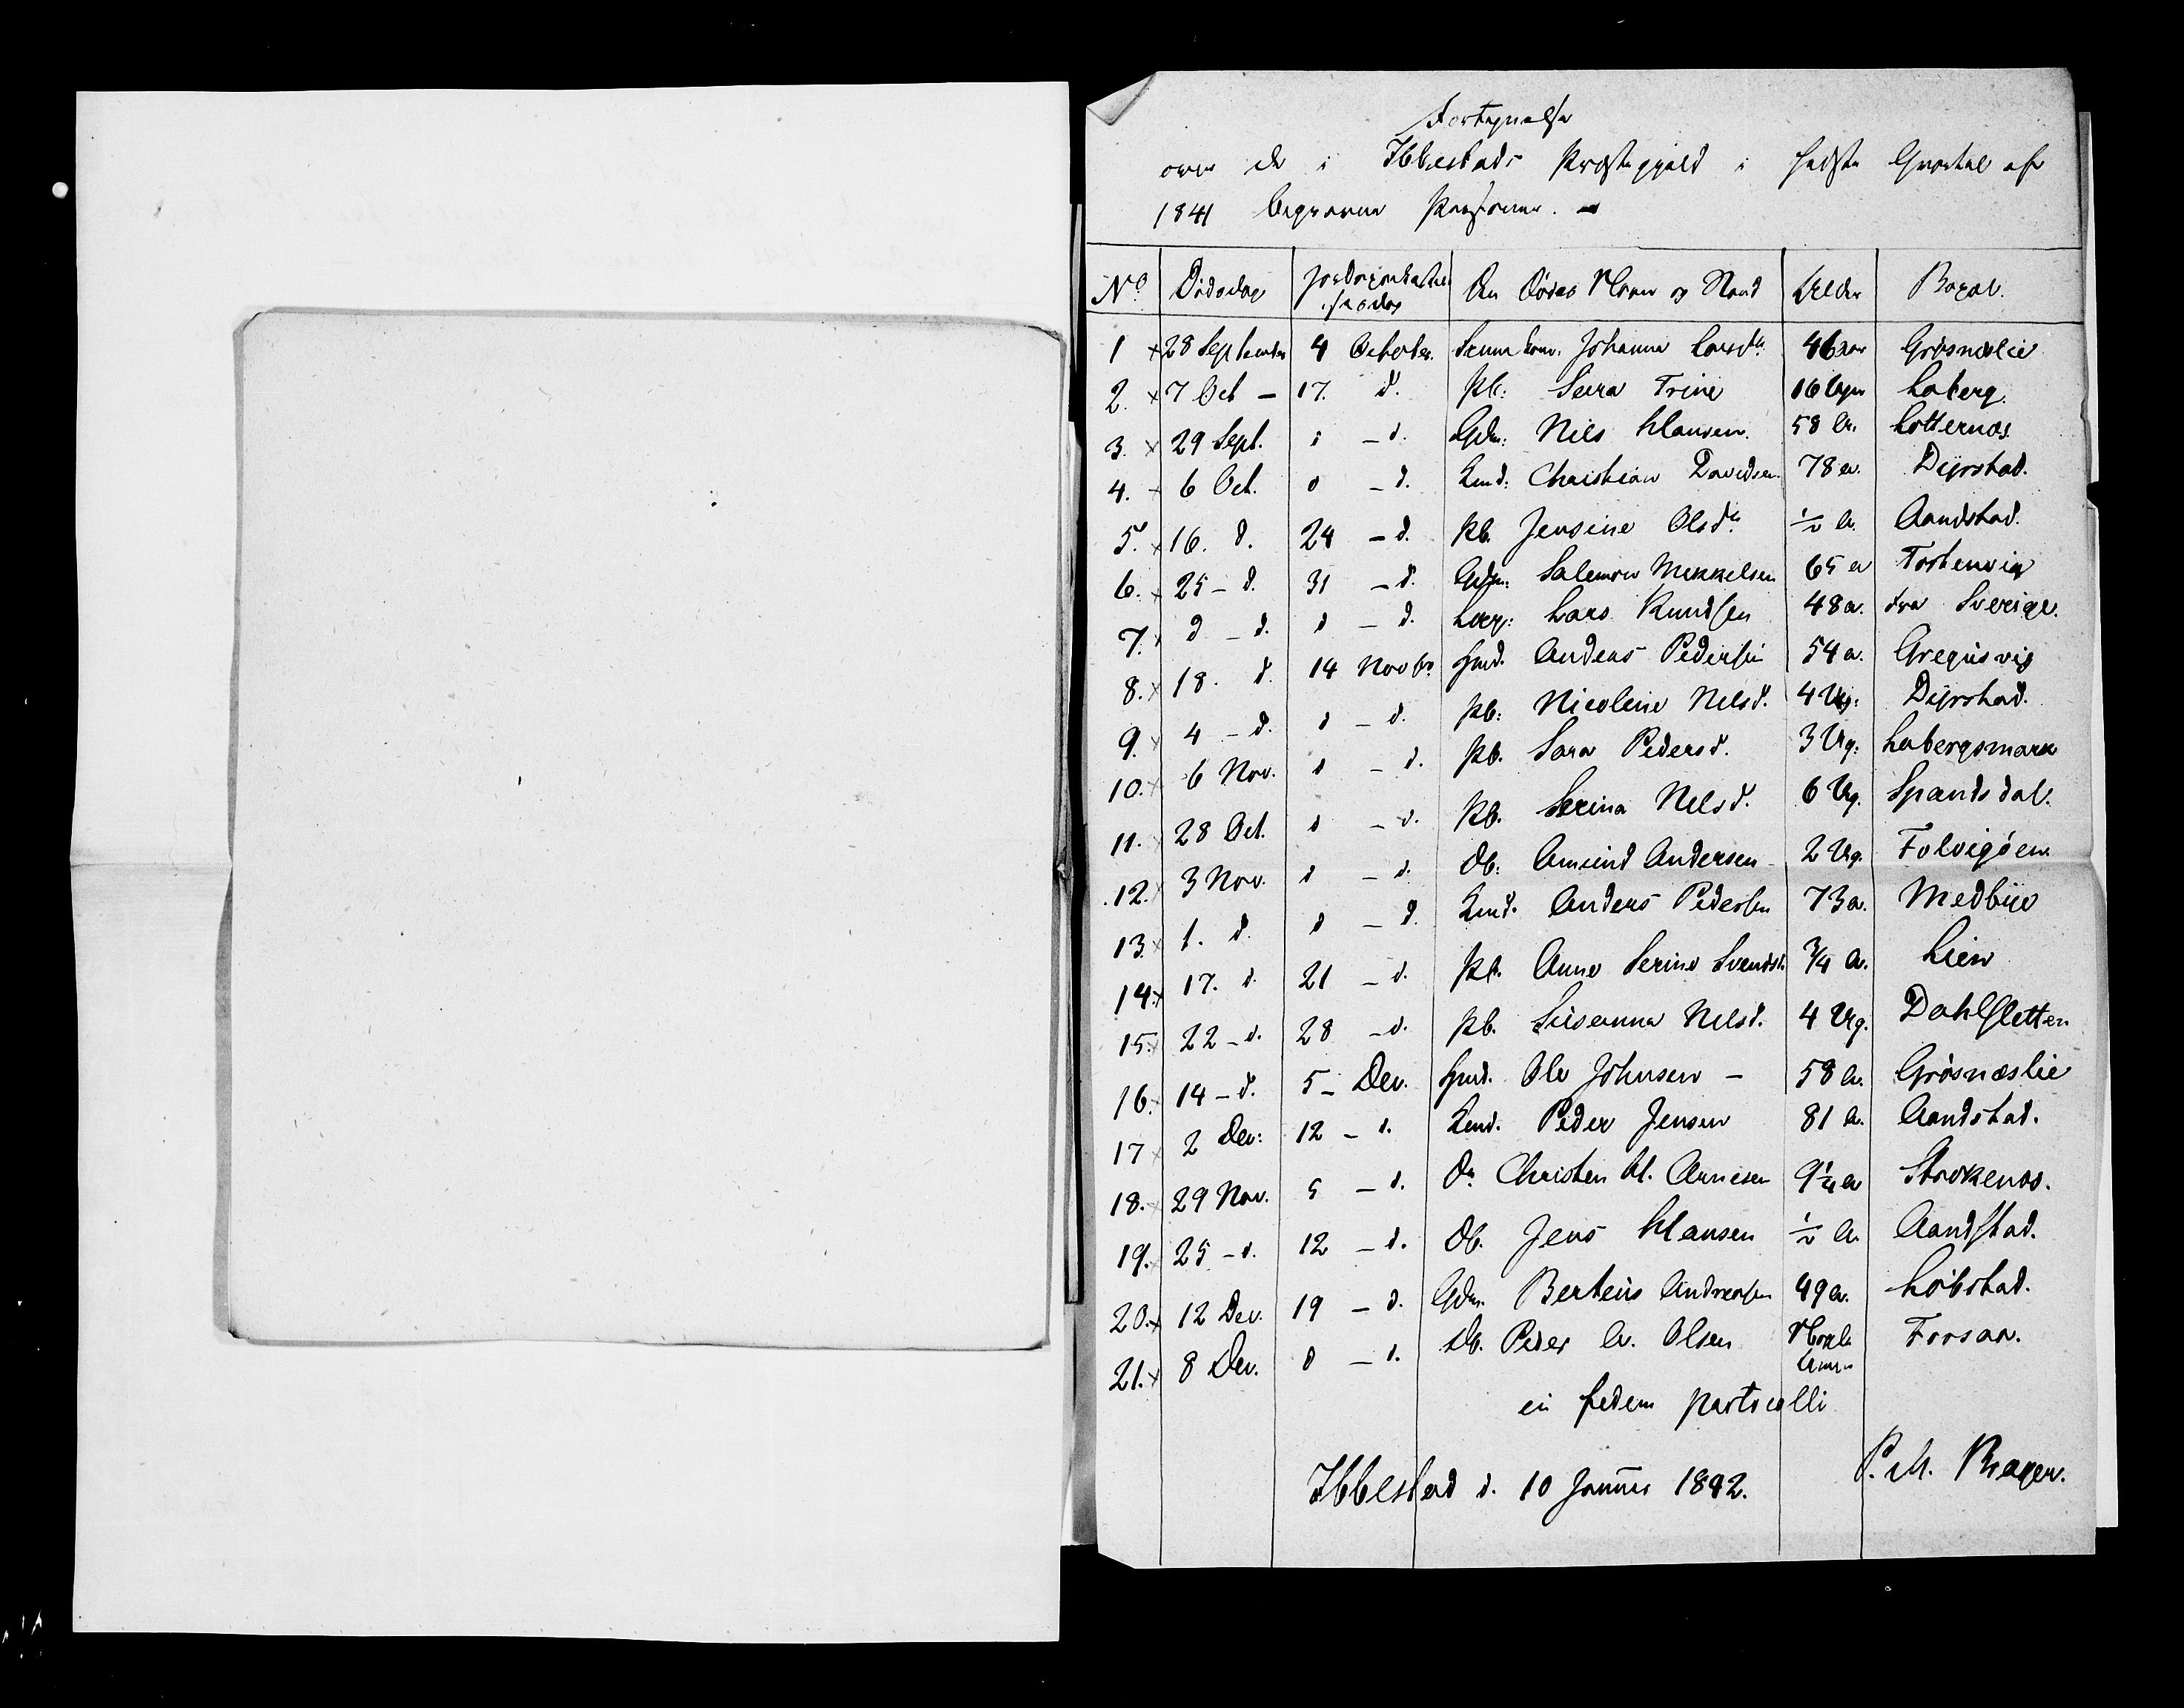 Fortegnelse
over de i Ibbestads Præstegjeld i sidste Qvartal af
1841 begravne Personer. -
No. Dødsdag Jordspaakastelsesdag Den Dødes Navn og Stand Alder Bopæl.
1 28 September 4 October. Johanna Larsdtr. 46 aar Grøsnæslie
2. 7 Oct - 17. d. Pb: Sara Trine 16 Uger Laberg.
3. 29 Sept. d - d. Gdm: Nils Hansen. 58 A. Lotternæs
4. 6 Oct. d - d. Lmd: Christian Davidsen. 78 a. Dyrstad.
5. 16. d. 24 - d. Pb. Jensine Olsdr. ½ A. Aandstad.
6. 25 - d. 31 - d. Gdm: Salemon Mekkelsen 65 a Tostenvig
7. d - d. d - d. Lars Knudsen 48 a. fra Sverige.
8. 18. d. 14 Novbr. Hmd. Anders Pedersen 54 a. Gregusvig
9. 4 - d. d - d. Pb: Nicoline Nelsd. 4 Ug: Dyrstad.
10. 6 Nov. d - d. Pb. Sara Pedersd. 3 Ug: Labergsmark
11. 28 Oct. d - d. Pb. Serina Nelsd. 6 Ug. Spandsdal.
12. 3 Nov. d - d. Db: Amund Andersen 2 Ug. Folvigøen
13. 1. d. d - d. Lmd. Anders Pedersen 73 a. Medbye
14. 17. d. 21 - d. Pb. Anne Serine Svendsd. ¾ A. Lien
15. 22 - d. 28 - d. Pb. Susanna Nelsd. 4 Ug. Dahlsletten
16. 14 - d. 5 - Dec. Hmd. Ole Johnsen - 58 A. Grøsnæslie
17 2 Dec: 12 - d. Lmd. Peder Jensen 81 A. Aandstad.
18. 29 Nov. 5 - d. Dr. Christen H. Arnesen 9¼ a Strokenæs.
19. 25 - d. 12 - d. Db. Jens Hansen ½ A. Aandstad.
20. 12 Dec. 19 - d. Gdm. Berteus Andreasen 49 a. Løbstad.
21. 8 Dec. d - d. Db. Peder A. Olsen Forsaa.
in fidem protocolli
Ibbestad d. 10 Januar 1842. P. M. Krager.